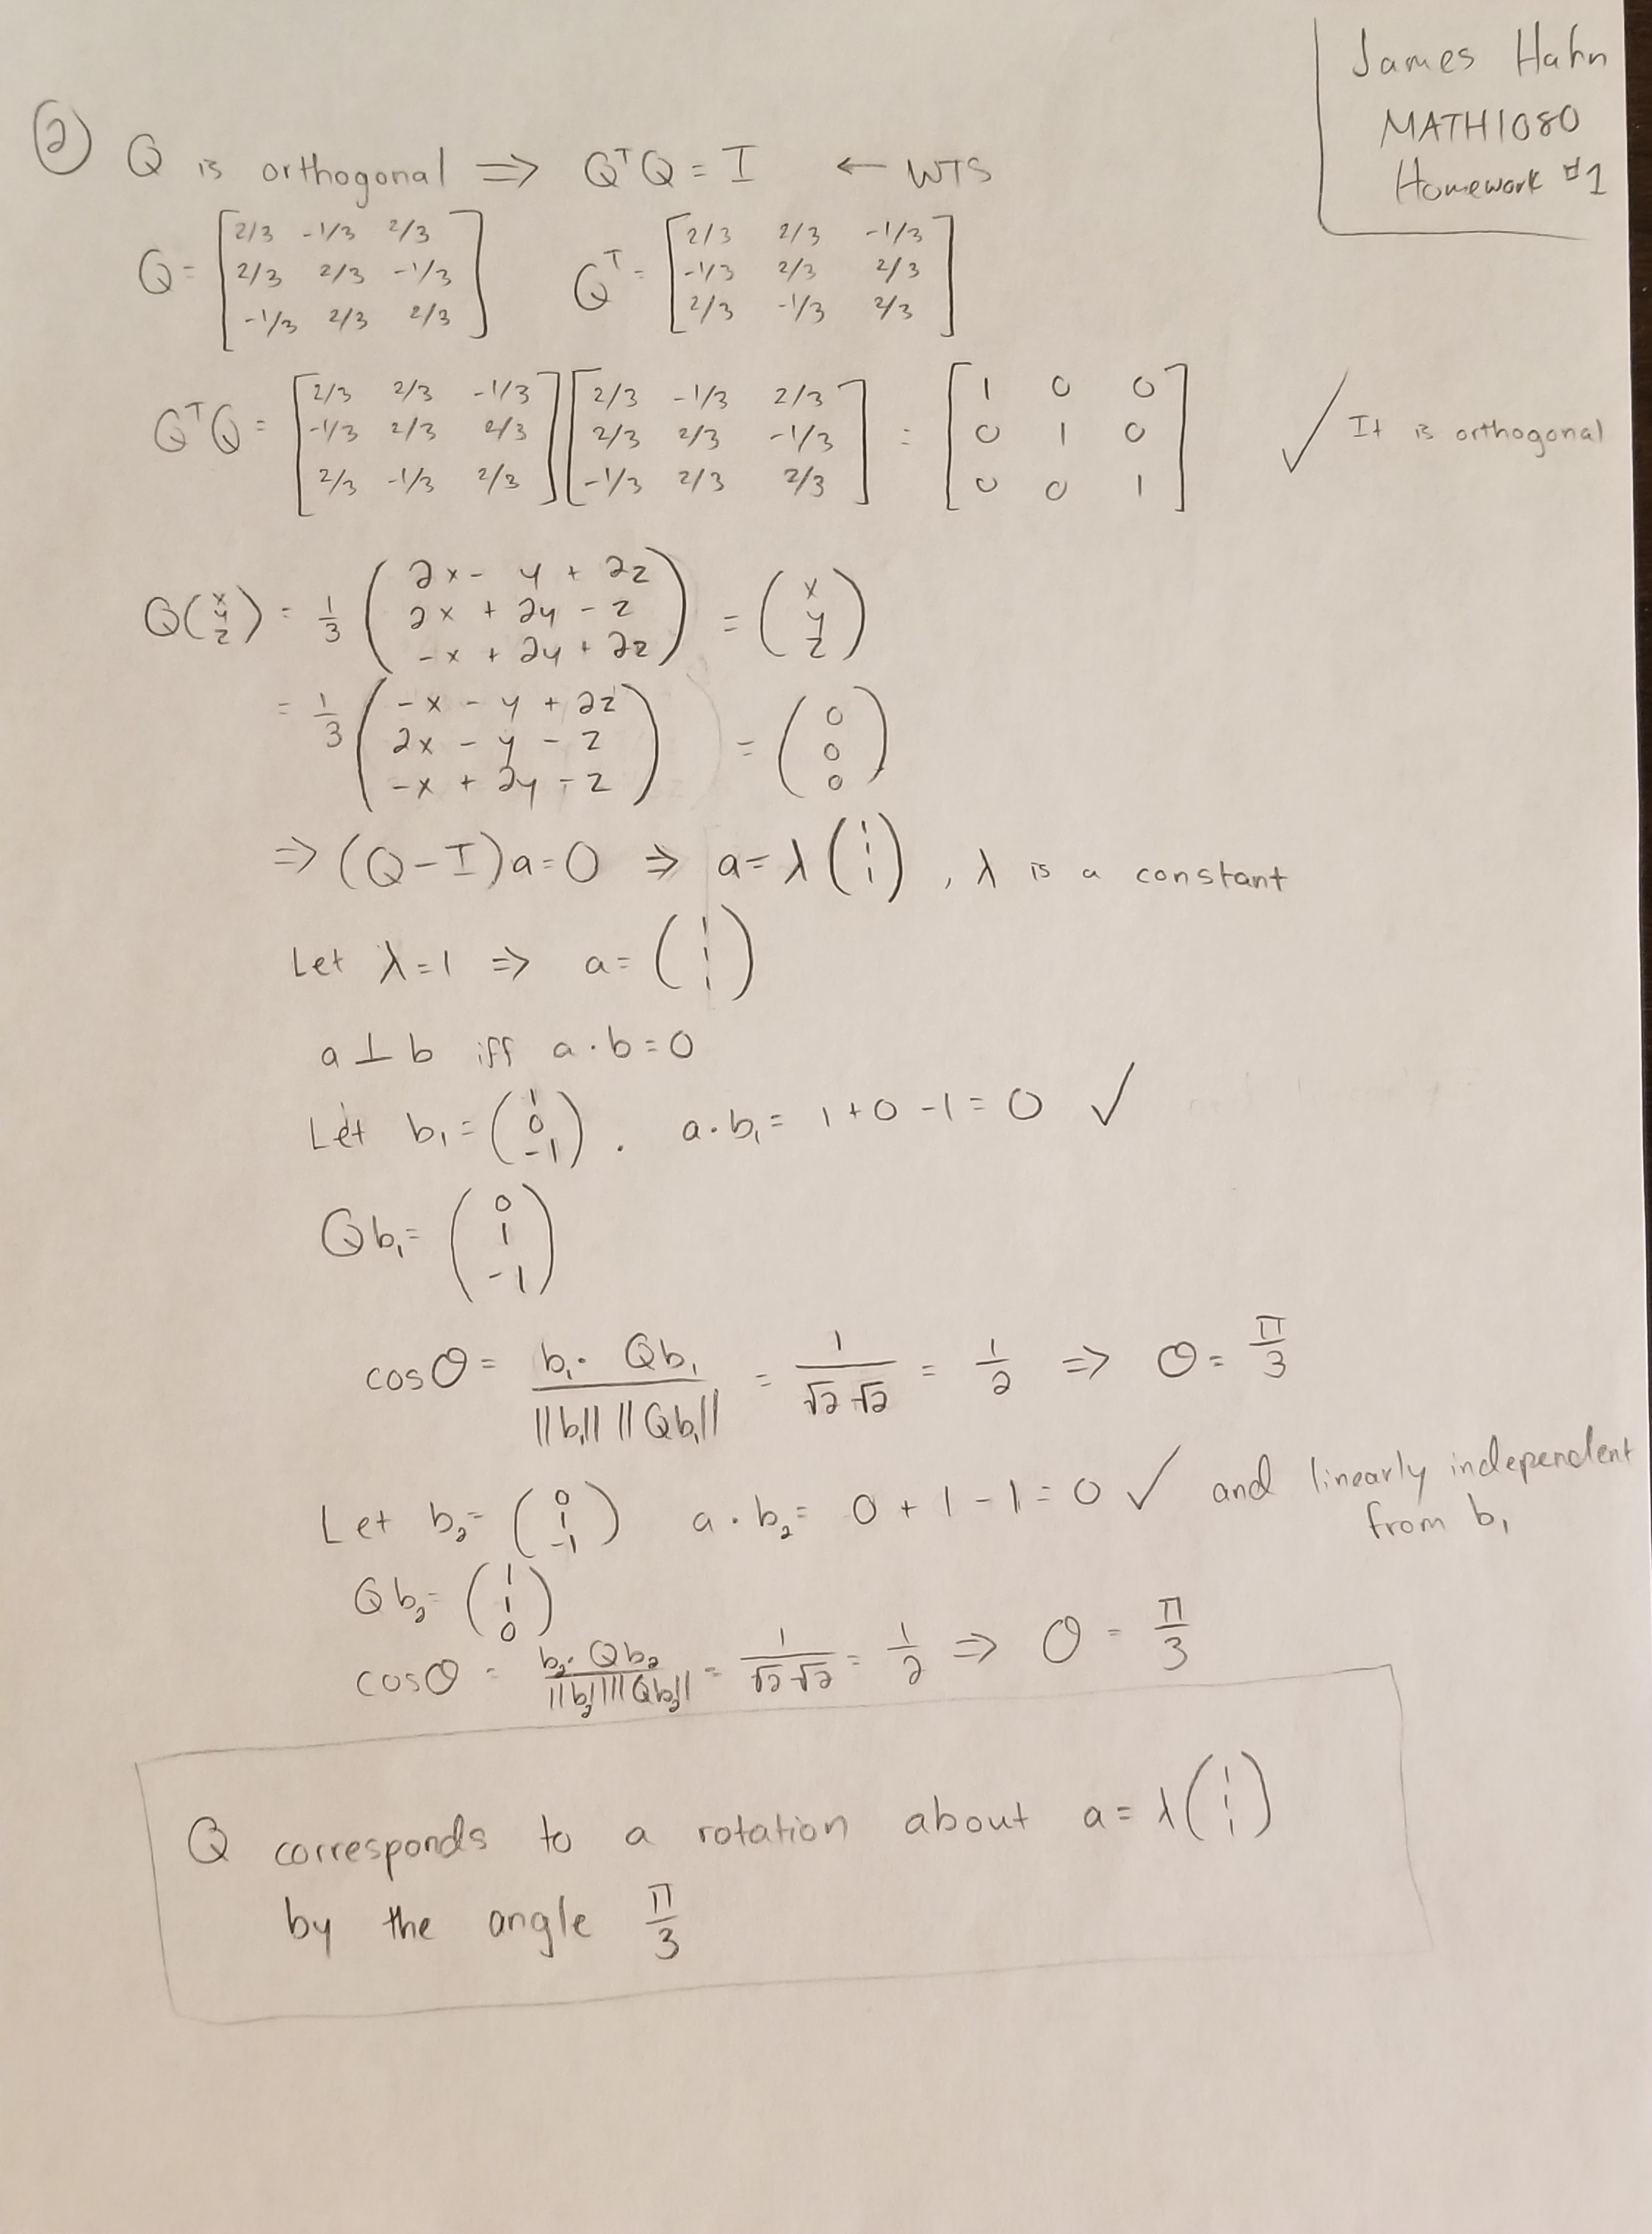 James Hahn
MATH1080
Homework #1
② Q is orthogonal ⇒ QᵀQ = I ← WTS
Q = [2/3 -1/3 2/3; 2/3 2/3 -1/3; -1/3 2/3 2/3] Qᵀ = [2/3 2/3 -1/3; -1/3 2/3 2/3; 2/3 -1/3 2/3]
QᵀQ = [2/3 2/3 -1/3; -1/3 2/3 2/3; 2/3 -1/3 2/3] [2/3 -1/3 2/3; 2/3 2/3 -1/3; -1/3 2/3 2/3] = [1 0 0; 0 1 0; 0 0 1] ✓ It is orthogonal
Q(x y z) = 1/3 (2x - y + 2z; 2x + 2y - z; -x + 2y + 2z) = (x; y; z)
= 1/3 (-x - y + 2z; 2x - y - z; -x + 2y - z) = (0; 0; 0)
⇒ (Q - I)a = 0 ⇒ a = λ(1; 1; 1), λ is a constant
Let λ = 1 ⇒ a = (1; 1; 1)
a ⊥ b iff a · b = 0
Let b₁ = (1; 0; -1). a · b₁ = 1 + 0 - 1 = 0 ✓
Qb₁ = (0; 1; -1)
cosΘ = b₁ · Qb₁ / ||b₁|| ||Qb₁|| = 1 / √2 √2 = 1/2 ⇒ Θ = π/3
Let b₂ = (0; 1; -1) a · b₂ = 0 + 1 - 1 = 0 ✓ and linearly independent
from b₁
Qb₂ = (1; 1; 0)
cosΘ = b₂ · Qb₂ / ||b₂|| ||Qb₂|| = 1 / √2 √2 = 1/2 ⇒ Θ = π/3
Q corresponds to a rotation about a = λ(1; 1; 1)
by the angle π/3